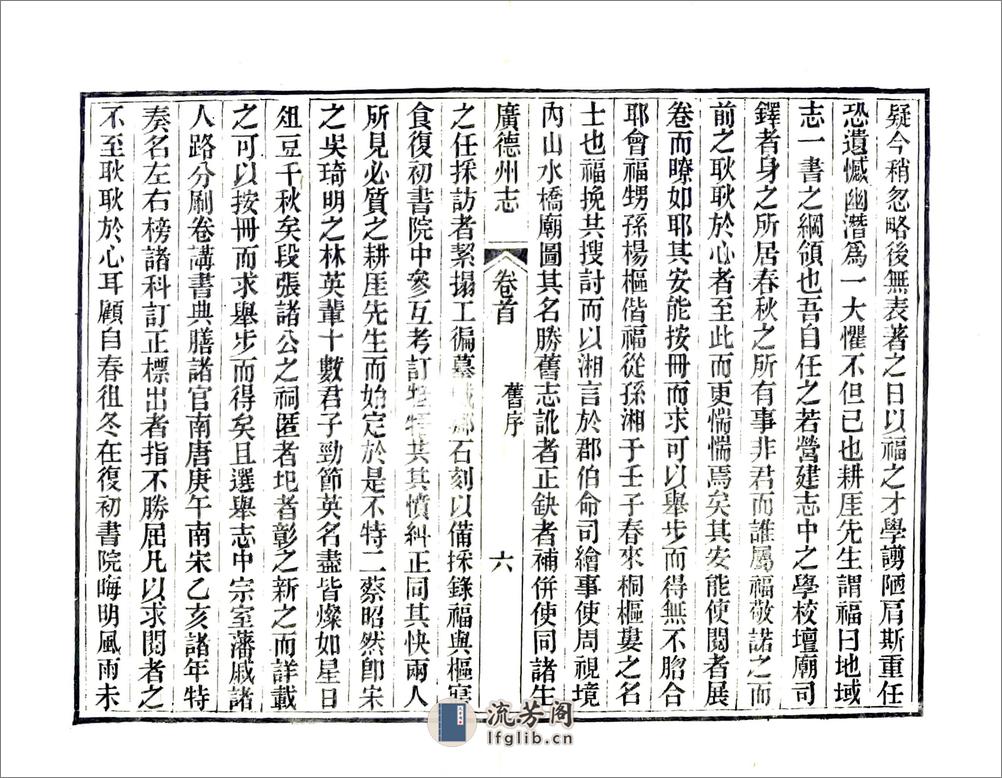 疑今稍忽略後無表著之日以福之才學謭陋肩斯重任
恐遺憾幽潛爲一大懼不但已也耕厓先生謂福曰地域
志一書之綱領也吾自任之若營建志中之學校壇廟司
鐸者身之所居春秋之所有事非君而誰屬福敬諾之而
前之耿耿於心者至此而更惴惴焉矣其安能使閱者展
卷而瞭如耶其安能按冊而求可以舉步而得無不脗合
耶會福甥孫楊樞偕福從孫湘于壬子春來桐樞婁之名
士也福挽共搜討而以湘言於郡伯命司繪事使周視境
內山水橋廟圖其名勝舊志訛者正缺者補併使同諸生
廣德州志 卷首 舊序 六
之任採訪者絜搨工徧墓石刻以備採錄福與樞寓
食復初書院中參互考訂其憤糾正同其快兩人
所見必質之耕厓先生而始定於是不特二蔡昭然卽宋
之吳琦明之林英輩十數君子勁節英名盡皆燦如星日
俎豆千秋矣段張諸公之祠匿者圯者彰之新之而詳載
之可以按冊而求舉步而得矣且選舉志中宗室藩戚諸
人路分刷卷講書典膳諸官南唐庚午南宋乙亥諸年特
奏名左右榜諸科訂正標出者指不勝屈凡以求閱者之
不至耿耿於心耳顧自春徂冬在復初書院晦明風雨未
流芳阁
lfglib.cn